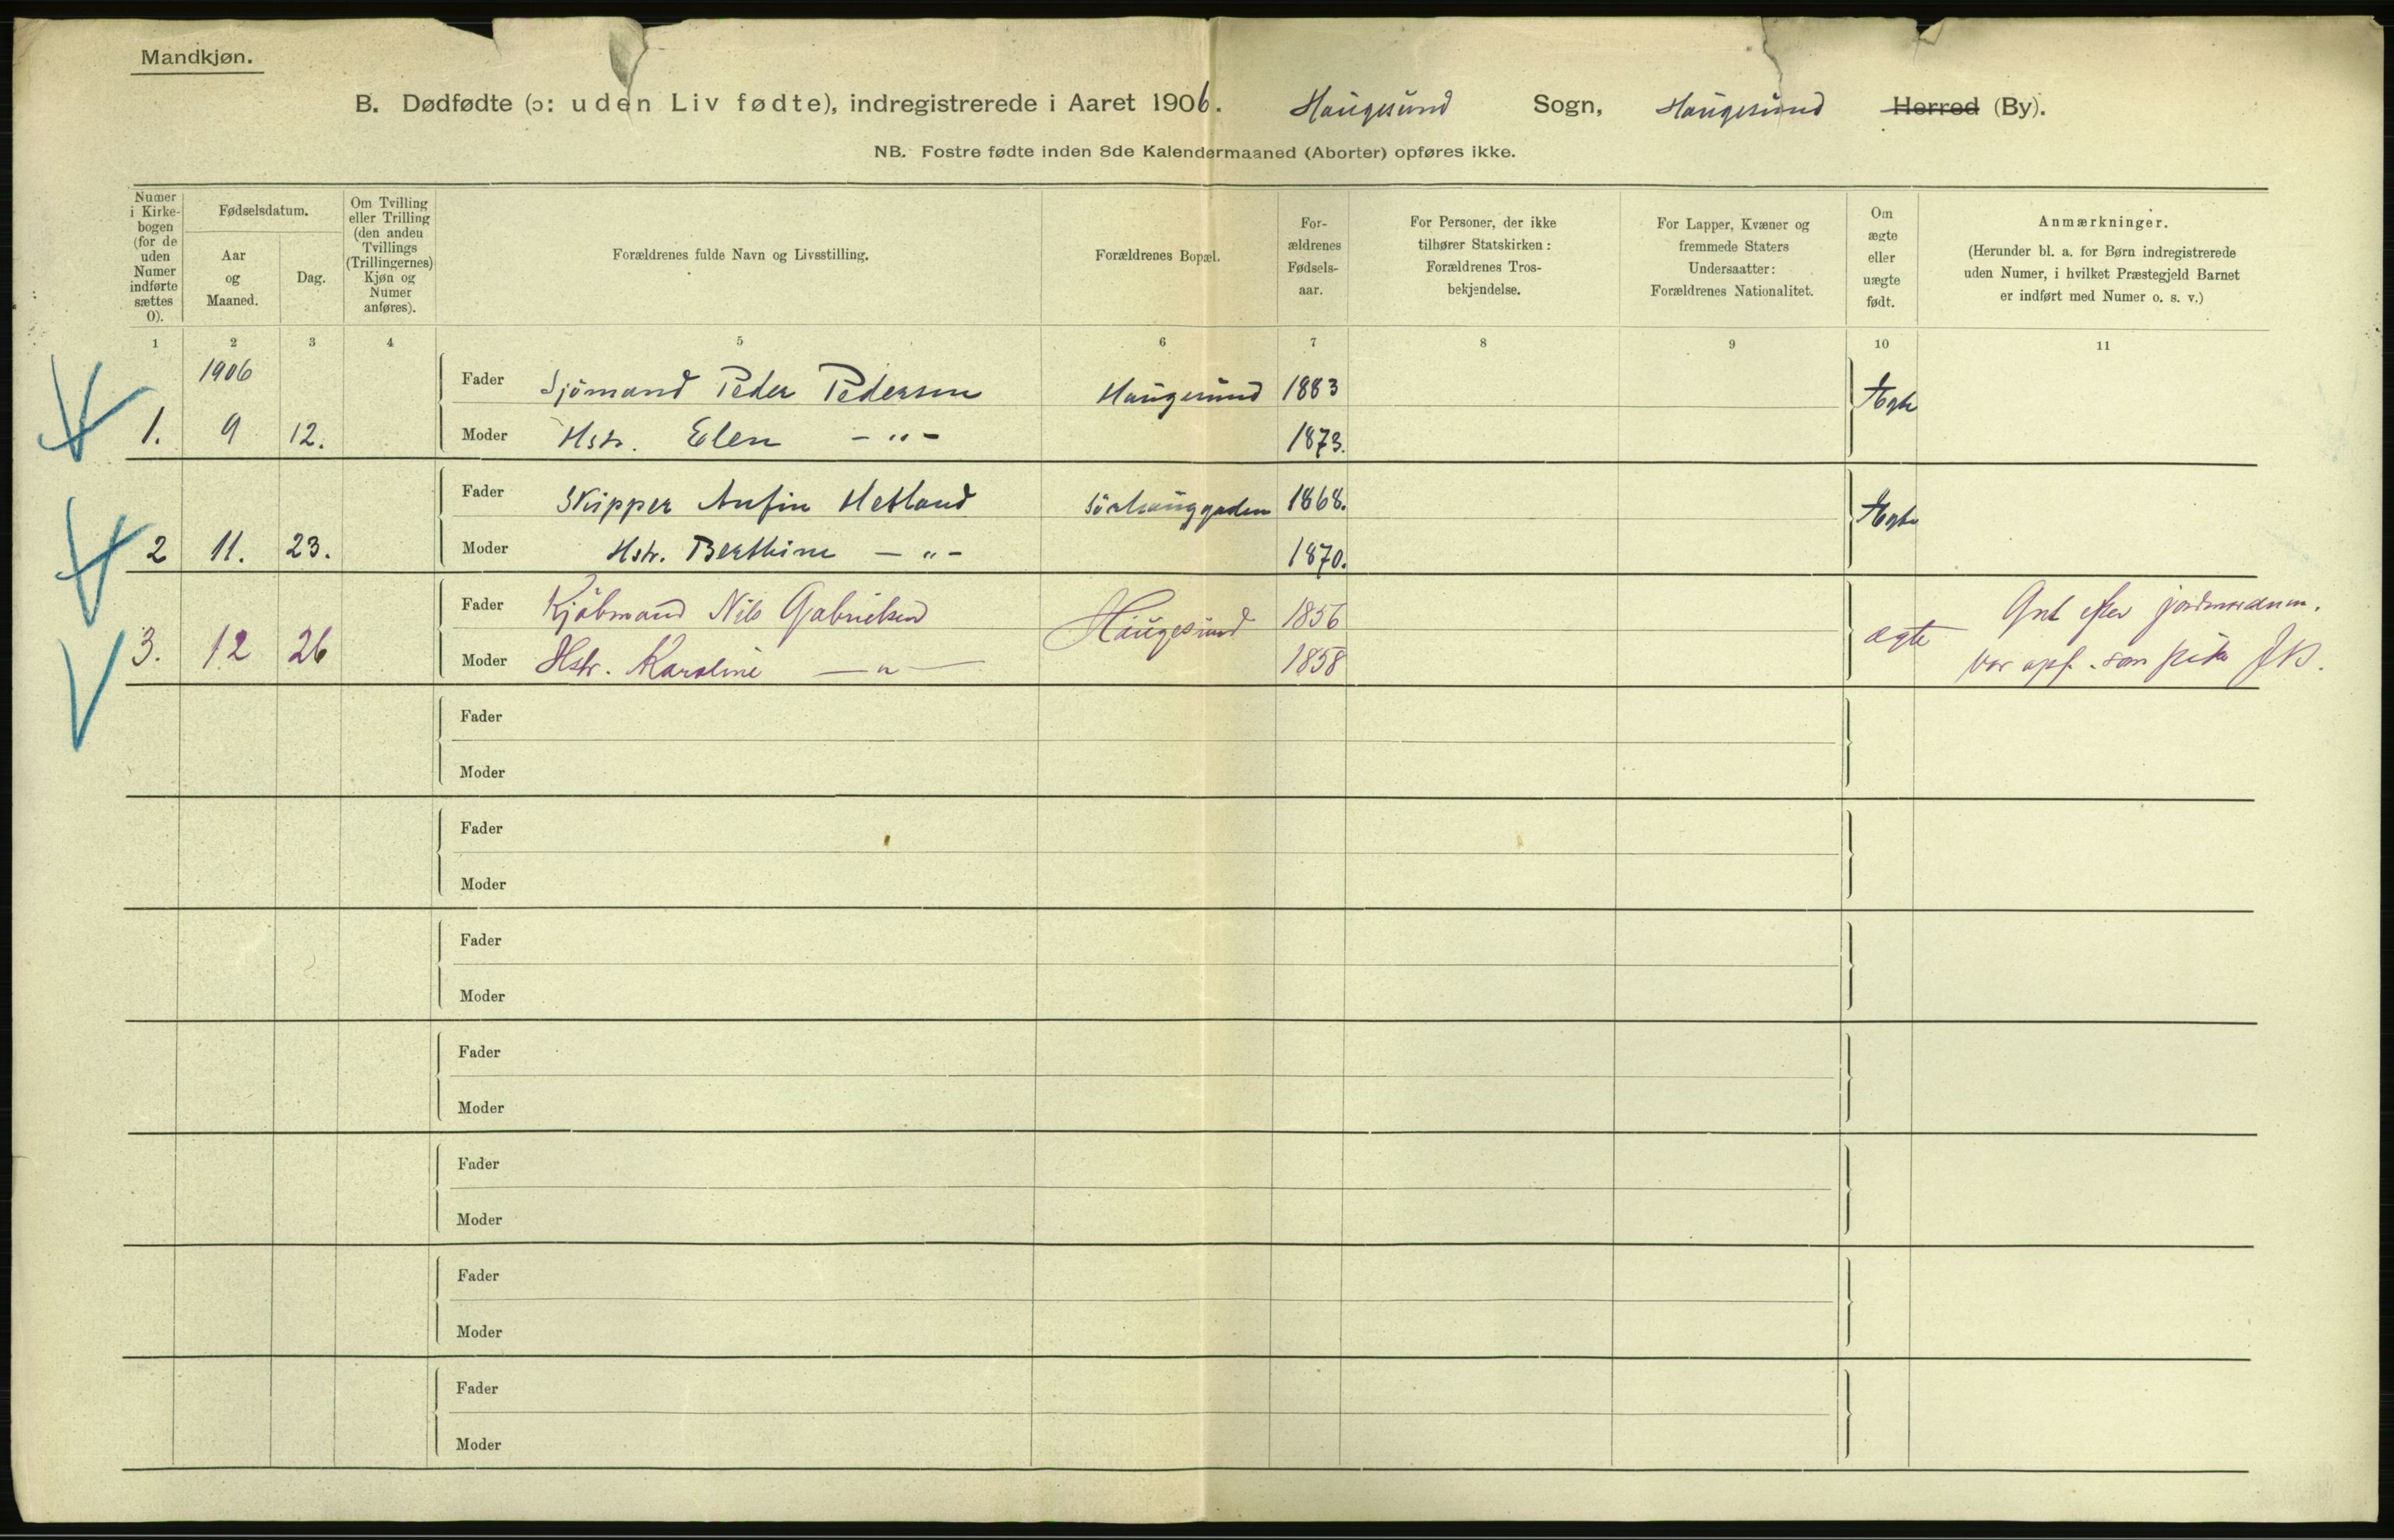 Mandkjøn.
B. Dødfødte (ɔ: uden Liv fødte), indregistrerede i Aaret 1906. Haugesund Sogn, Haugesund Herred (By).
NB. Fostre fødte inden 8de Kalendermaaned (Aborter) opføres ikke.
Numer i Kirke-bogen (for de uden Numer indførte sættes 0).
Fødselsdatum.
Aar og Maaned.
Dag.
Om Tvilling eller Trilling (den anden Tvillings (Trillingernes) Kjøn og Numer anføres).
Forældrenes fulde Navn og Livsstilling.
Forældrenes Bopæl.
For-ældrenes Fødsels-aar.
For Personer, der ikke tilhører Statskirken: Forældrenes Tros-bekjendelse.
For Lapper, Kvæner og fremmede Staters Undersaatter: Forældrenes Nationalitet.
Om ægte eller uægte født.
Anmærkninger.
(Herunder bl. a. for Børn indregistrerede uden Numer, i hvilket Præstegjeld Barnet er indført med Numer o. s. v.)
1 2 3 4 5 6 7 8 9 10 11
1906
Fader Sjömand Peder Pedersen Haugesund 1883 Ægte
1. 9 12. Moder Hstr. Elen - " - 1873.
Fader Skipper Anfin Hetland Sörhauggaden 1868. Ægte
2 11. 23. Moder Hstr. Berthine - " - 1870.
Fader Kjöbmand Nils Gabrielsen Haugesund 1856 ægte efter jordmoderen.
3. 12 26 Moder Hstr. Karoline - " - 1858 Var opf. som pike
Fader
Moder
Fader
Moder
Fader
Moder
Fader
Moder
Fader
Moder
Fader
Moder
Fader
Moder